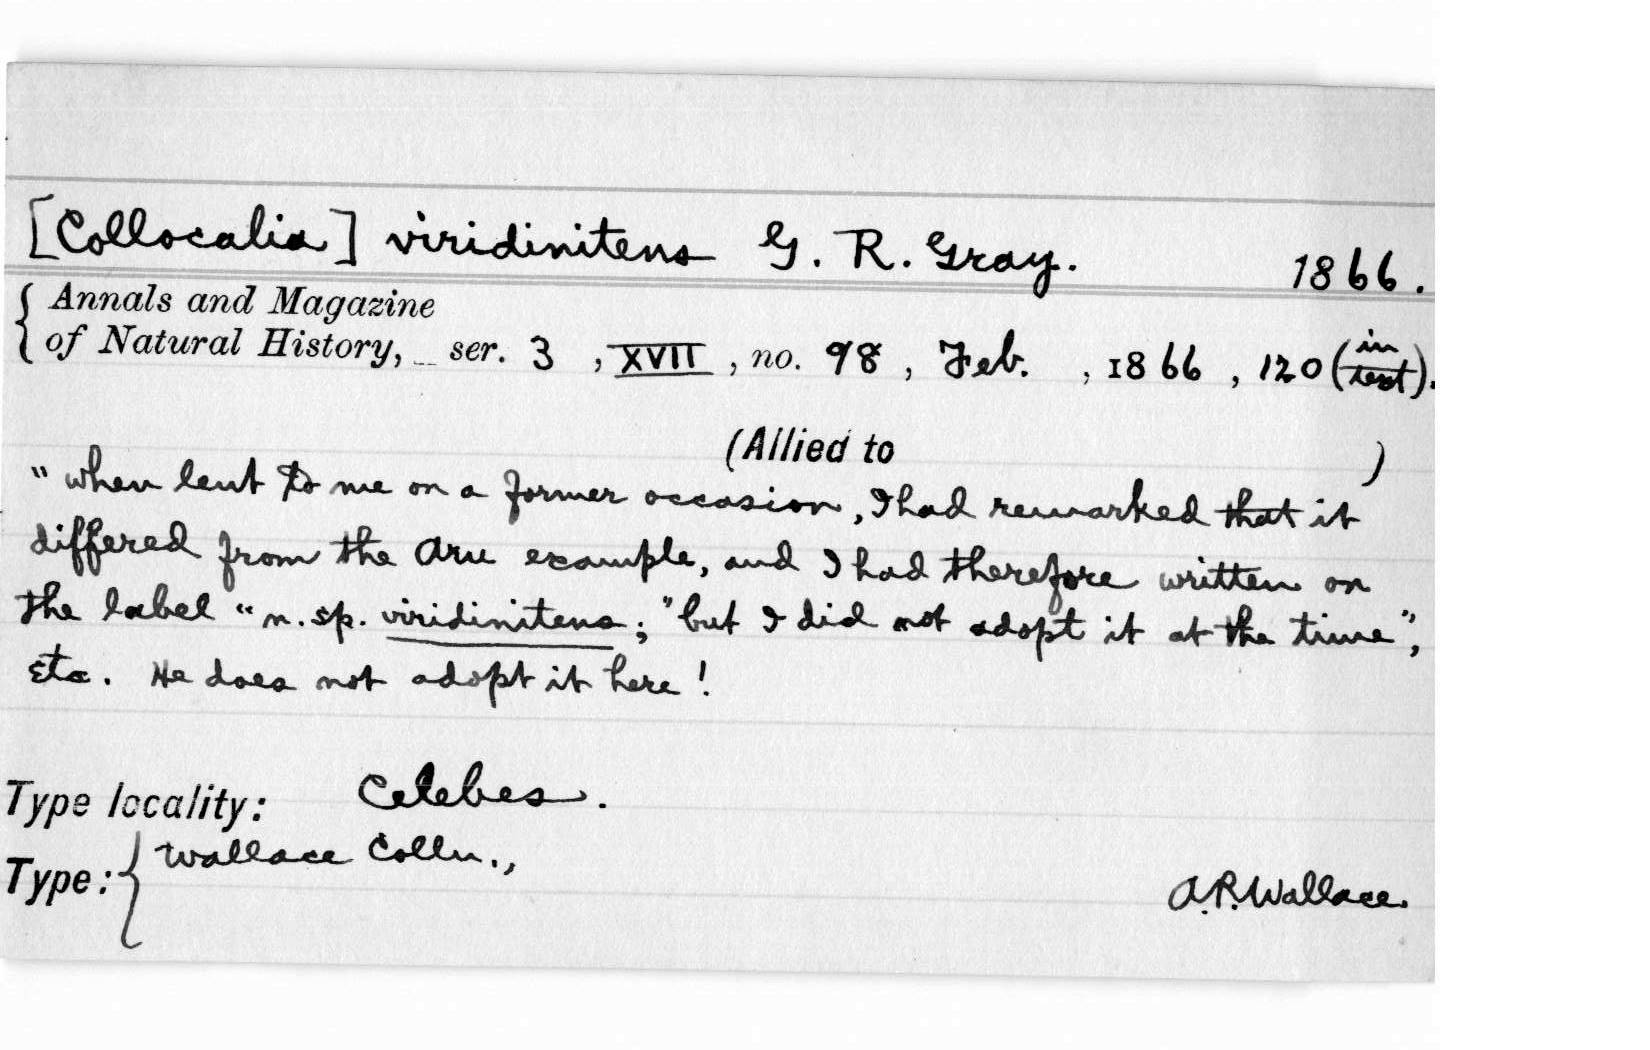 [Collocalia] viridinitens G. R. Gray. 1866.
Annals and Magazine
of Natural History, ser. 3, XVII, no. 98, Feb., 1866, 120 (in text).
(Allied to )
"when lent to me on a former occasion, I had remarked that it
differed from the Aru example, and I had therefore written on
the label "n. sp. viridinitens;" but I did not adopt it at the time",
etc. He does not adopt it here!
Type locality: Celebes.
Type: Wallace Colln.,
A.R. Wallace.